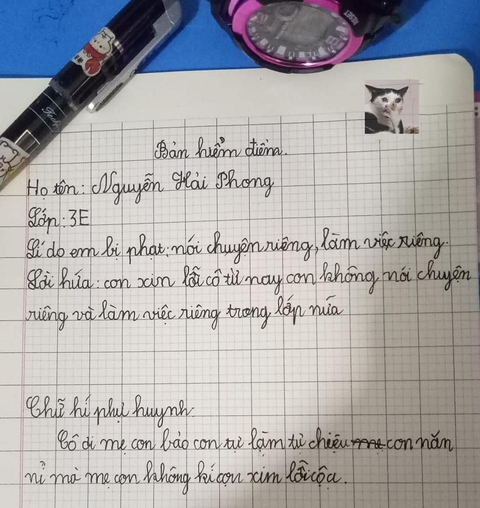 Bản hiểm điểm.
Họ tên: Nguyễn Hải Phong
Lớp: 3E
Lí do em bị phạt: nói chuyện riêng, làm việc riêng.
Lời hứa: con xin lỗi cô từ nay con không nói chuyện
riêng và làm việc riêng trong lớp nữa
Chữ kí phụ huynh
Cô ơi mẹ con bảo con tự làm tự chịu con năn
nỉ mà mẹ con không kí con xin lỗi cô ạ.